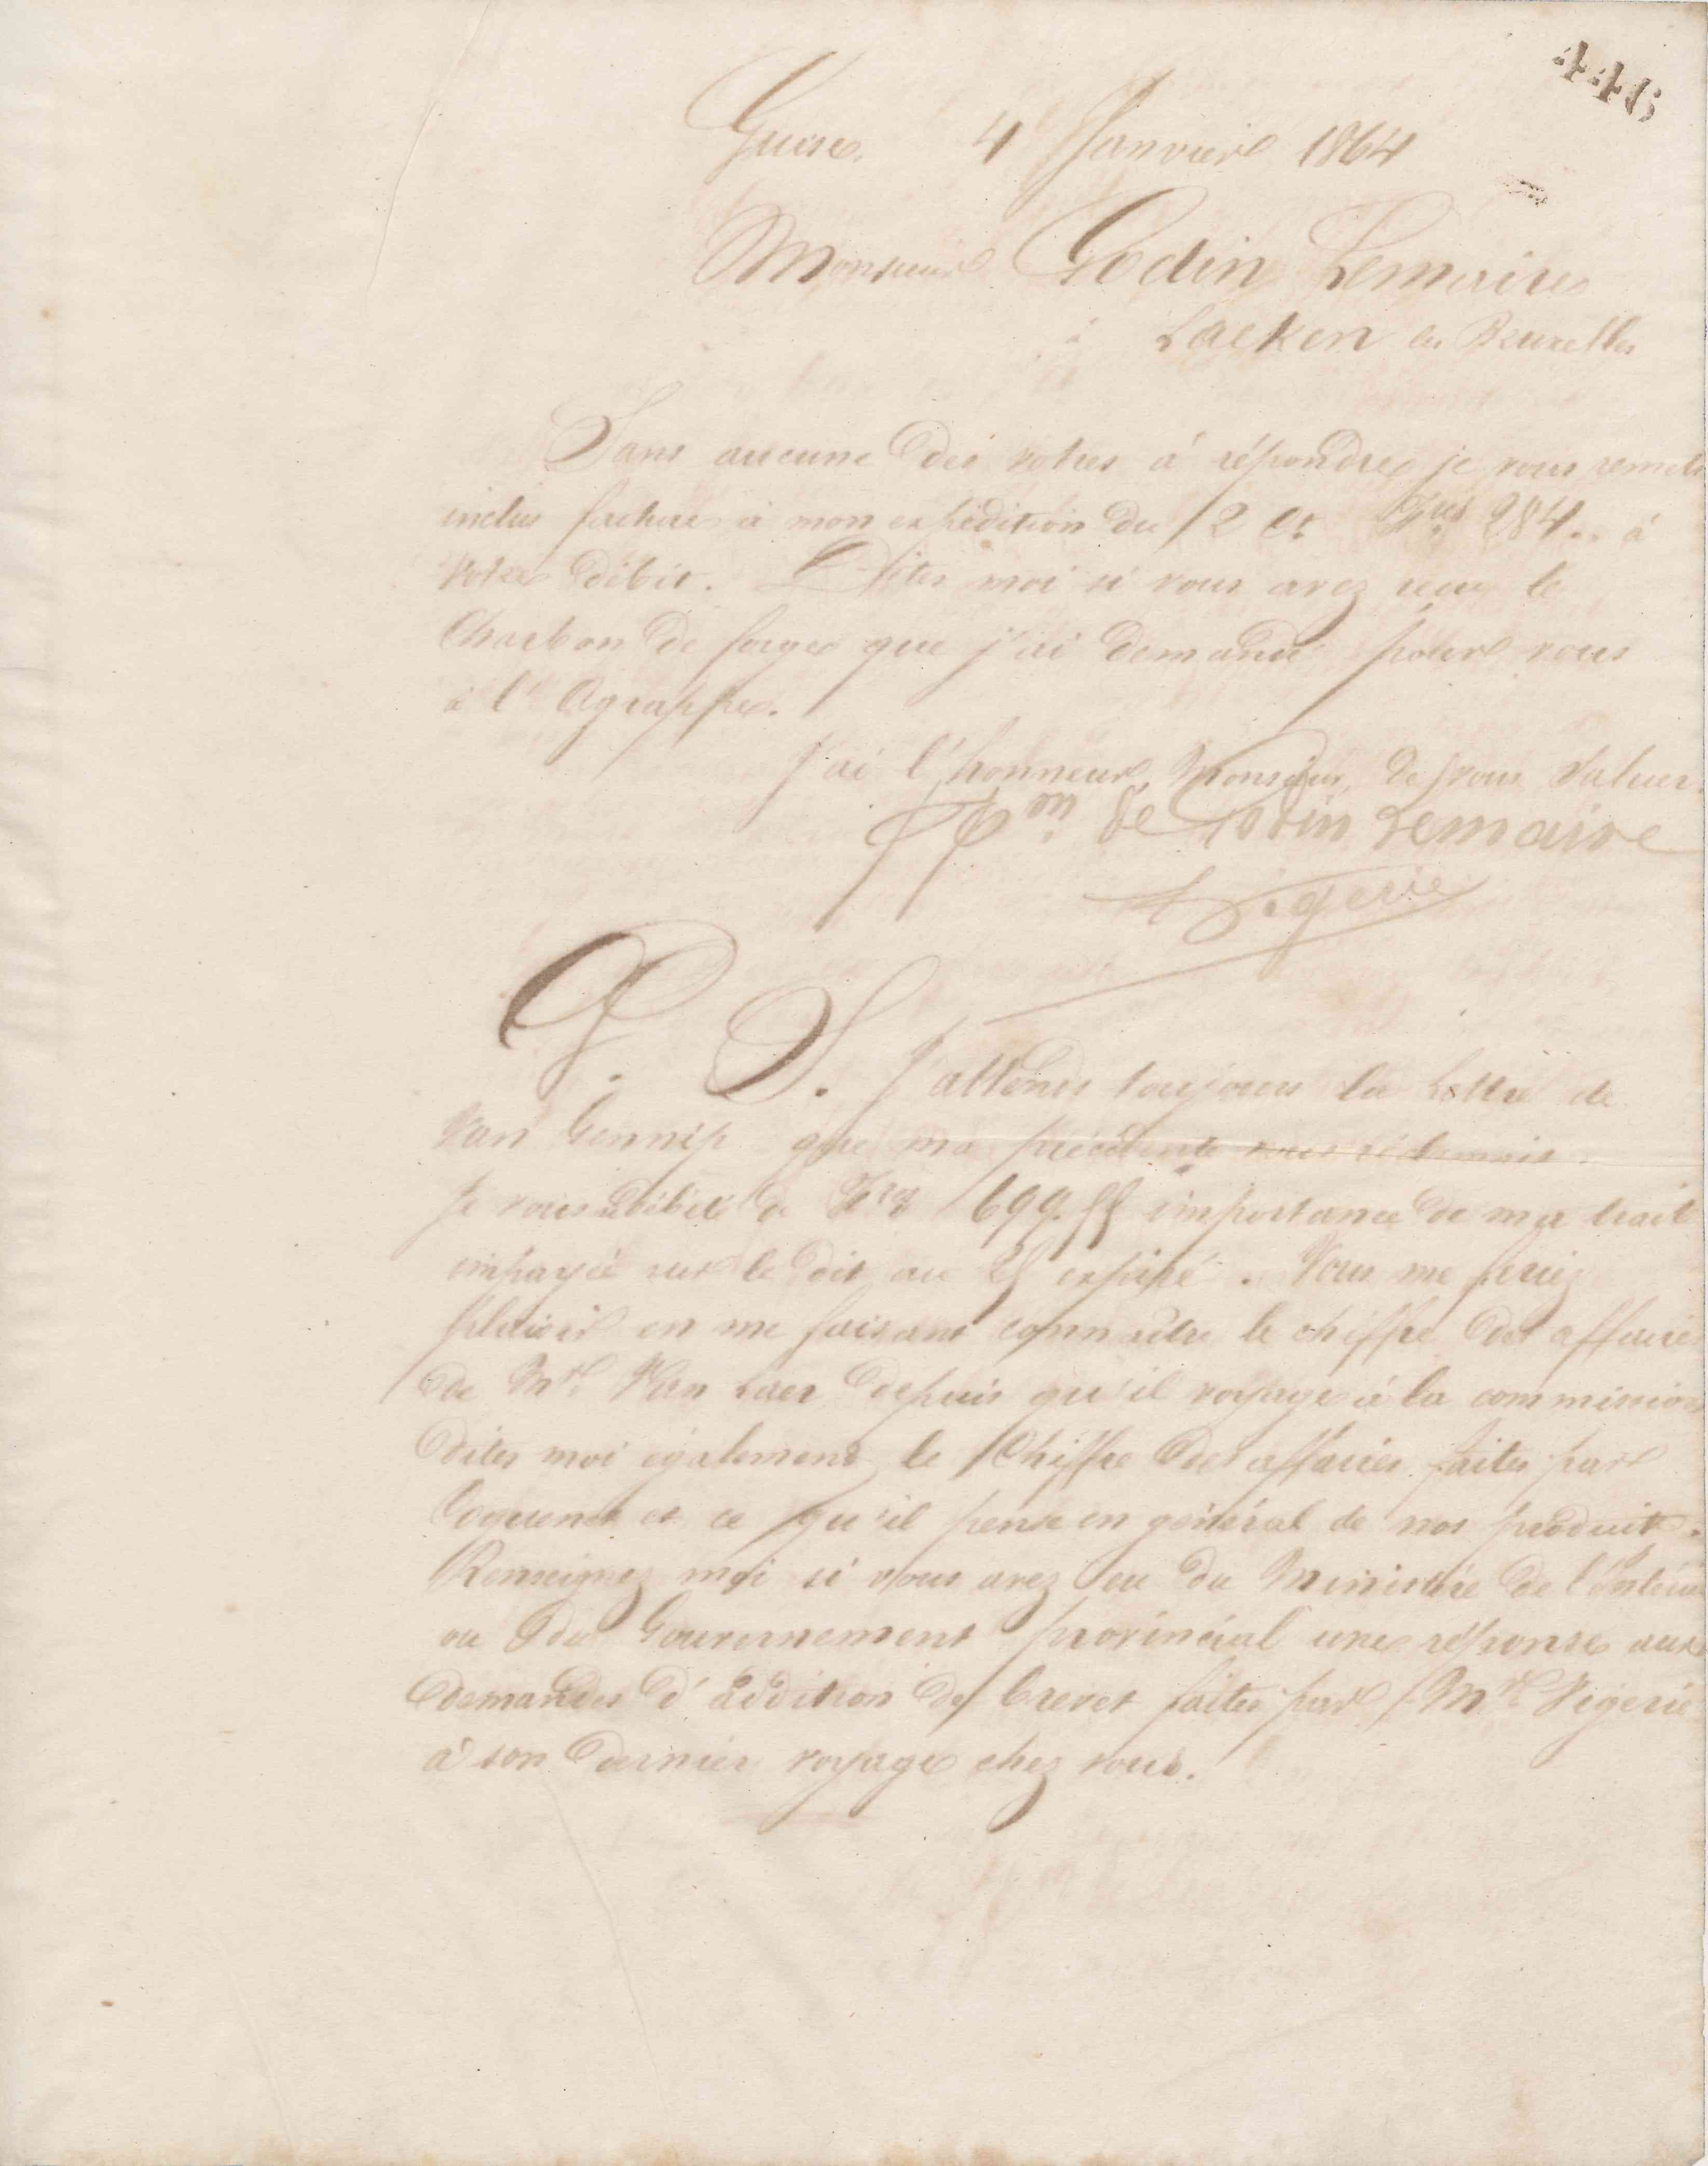 446
Guise, 4 Janvier 1864
Monsieur Godin Lemaire
à Laeken les Bruxelles
Sans aucune des votres à répondre je vous remets
inclus facture à mon expédition du 2 Ct 284 .. à
votre débit. Dites moi si vous avez reçu le
Charbon de forge que j'ai demandé pour vous
à l'Agrappe.
J'ai l'honneur, Monsieur, de vous saluer.
PPon de Godin Lemaire
Vigerie
P. S. J'attends toujours la lettre de
Van Gennip que ma précédente vous réclamais.
Je vous débite de Frcs 699.55 importance de ma trait
impayée sur le dit au 25 expiré. Vous me feriez
plaisir en me faisant connaître le chiffre des affaires
de Mr Van Laer depuis qu'il voyage à la commission
dites moi également le Chiffre des affaires faites par
et ce qu'il pense en général de nos produits.
Renseignez moi si vous avez eu du Ministère de l'Intérieur
ou du Gouvernement provincial une réponse aux
demandes d'addition de brevet faites par Mr Vigerie
à son dernier voyage chez vous.